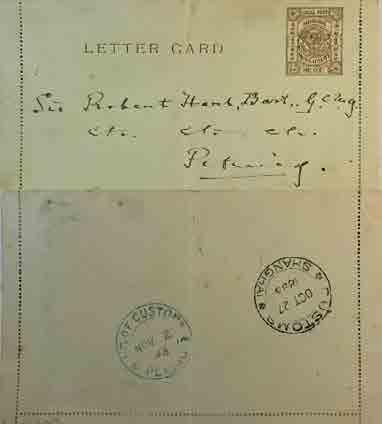 LOCAL POST
LETTER CARD
Sir Robert Hart, Bart., G.C.M.G.
etc. etc. etc.
Peking.
CUSTOMS
OCT 27
SHANGHAI
OF CUSTOMS
NOV 2
PEKING